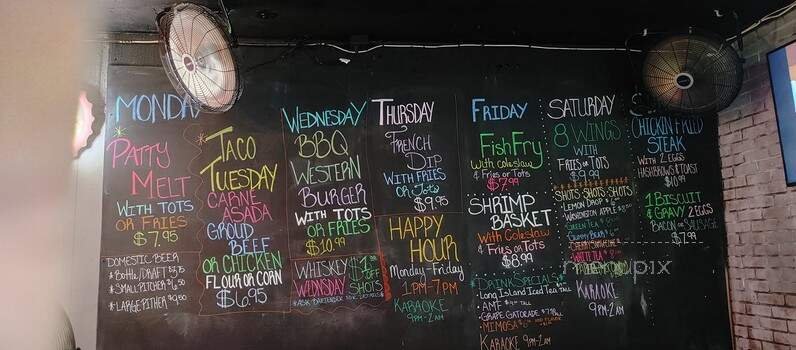 MONDAY
PATTY
MELT
WITH TOTS
OR FRIES
$7.95
DOMESTIC BEER
BOTTLE/DRAFT $3.75
SMALL PITCHER $6.50
LARGE PITCHER $9.50
TACO
TUESDAY
CARNE
ASADA
GROUD
BEEF
OR CHICKEN
FLOUR OR CORN
$6.95
WEDNESDAY
BBQ
WESTERN
BURGER
WITH TOTS
OR FRIES
$10.99
WHISKEY
WEDNSDAY
$1 OFF
SHOTS
THURSDAY
FRENCH
DIP
WITH FRIES
OR TOTS
$9.95
HAPPY
HOUR
MONDAY-FRIDAY
1PM-7PM
KARAOKE
9PM-2AM
FRIDAY
FISH FRY
WITH COLESLAW
& FRIES OR TOTS
$7.99
SHRIMP
BASKET
WITH COLESLAW
& FRIES OR TOTS
$8.99
DRINK SPECIALS
LONG ISLAND ICED TEA TALL
AMF
GRAPE GATORADE
MIMOSA
KARAOKE 9PM-2AM
SATURDAY
8 WINGS
WITH
FRIES OR TOTS
$9.99
SHOTS SHOTS SHOTS
LEMON DROP
WASHINGTON APPLE
GREEN TEA
GUMMY BEAR
WHITE TEA
KARAOKE
9PM-2AM
CHICKIN FRIED
STEAK
WITH 2 EGGS
HASHBROWNS & TOAST
$10.99
1 BISCUIT
& GRAVY 2 EGGS
BACON OR SAUSAGE
$7.99